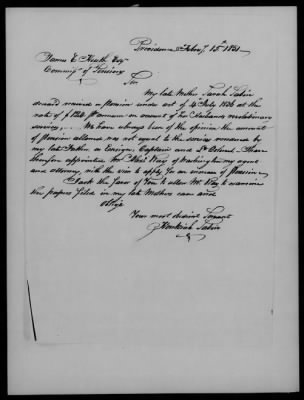 Providence Feby. 15th 1851
James E. Heath Esq
Commr. of Pensions
Sir
My late Mother Sarah Sabin
received a pension under act of 4th July 1836 at the
rate of $ pr annum on account of her Husbands revolutionary
services, We have always been of the opinion the amount
of Pension allowed was not equal to the service rendered by
my late Father as Ensign, Captain and Lt Colonel. I have
therefore appointed Mr of Washington my agent
and attorney, with the view to apply for an increase of Pension
I ask the favor of You to allow Mr to examine
the papers filed in my late Mothers case and
oblige
Your most obedient Servant
Sabin